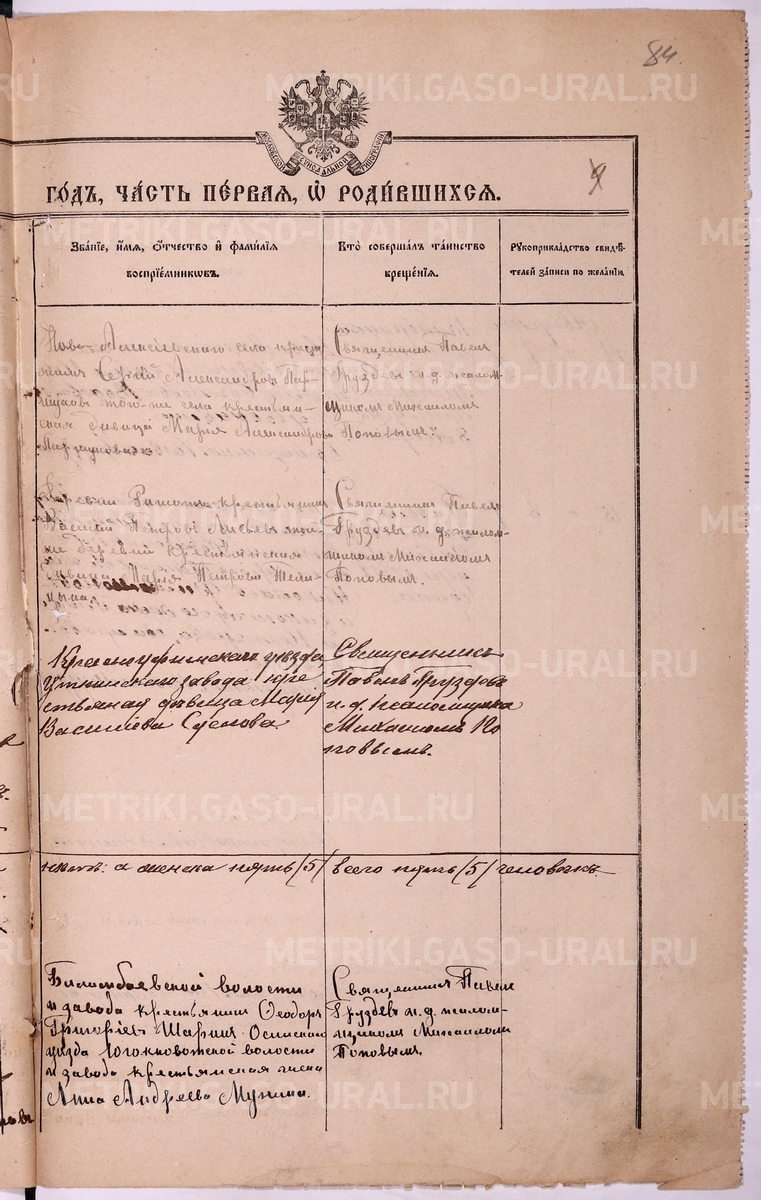 84.
МОСКОВСКОЙ СѴНОДАЛЬНОЙ ТИПОГРАФІИ
9
ГОДЪ, ЧАСТЬ ПЕРВАЯ, Ѡ РОДИВШИХСЯ.
Званіе, имя, отчество и фамилія
воспріемниковъ.
Кто совершалъ таинство
крещенія.
Рукоприкладство свидѣ-
телей записи по желанію
Ново Алексіевского села кресть
Сергій Александровъ Пар-
того-же села крестьян-
ская дивица Марія Александрова
Священникъ Павелъ
Груздевъ и. д. псалом-
щиком Михаиломъ
Поповымъ.
Деревни крестьянинъ
Василій Петровъ
же деревни крестьянская
дивица Марія Петрова
Священникъ Павелъ
Груздевъ и. д. псалом-
щиком Михаиломъ
Поповымъ.
Красноуфимскаго уѣзда
Уткинскаго завода кре
стьянская дѣвица Марія
Василіева Суслова
Священникъ
Павелъ Груздевъ
и. д. псаломщика
Михаиломъ По
повымъ.
а женска пять (5) всего пять (5) человѣкъ.
Билимбаевской волости
и завода крестьянин Ѳеодоръ
Григоріев Осинскаго
уизда Югокновожской волости
и завода крестьянская жена
Анна Андреева Мунина.
Священникъ Павелъ
Груздевъ и. д. псалом-
щиком Михаиломъ
Поповымъ.
METRIKI.GASO-URAL.RU